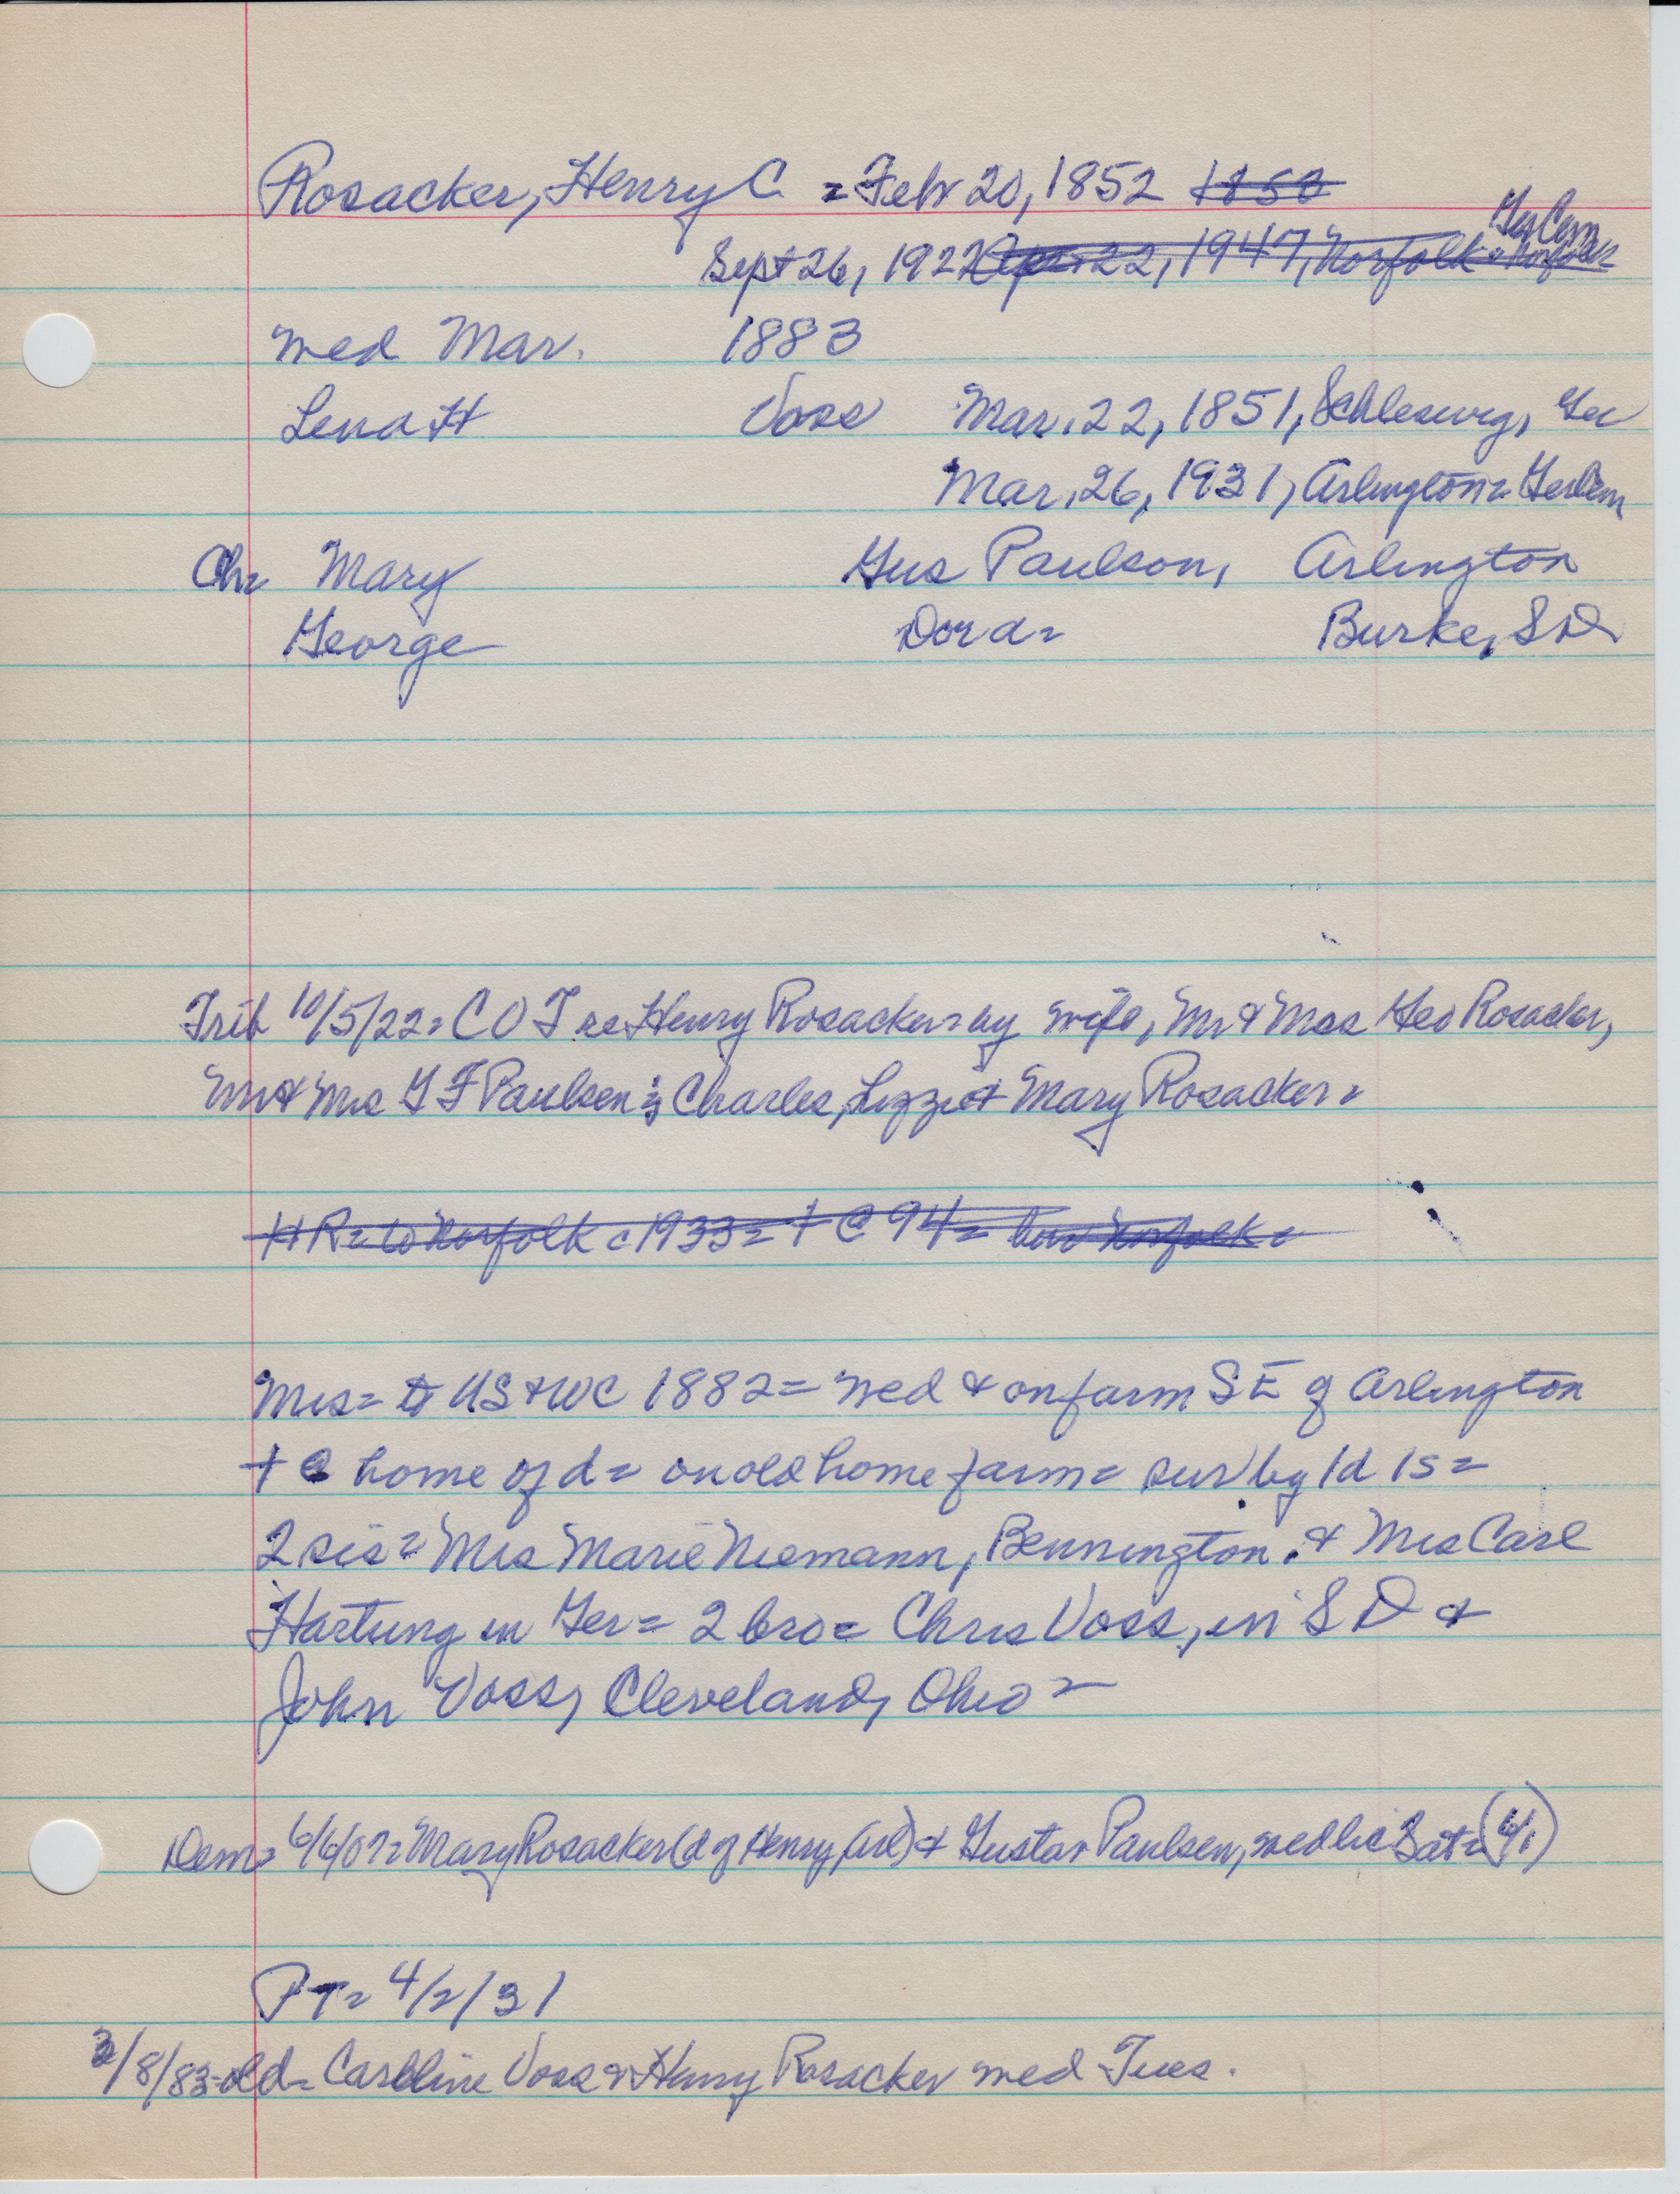 Rosacker, Henry C. = Feb 20, 1852 1850
Ger Cem
Sept 26, 1922 Apr. 22, 1947, Norfolk = Norfolk
wed Mar. 1883
Lena H Voss Mar. 22, 1851, Schleswig, Ger
Mar. 26, 1931, Arlington = Ger Cem
Ch= Mary Gus Paulson, Arlington
George Dora = Burke, S D
Trib 10/5/22 = C O T re Henry Rosacker = by wife, Mr & Mrs Geo Rosacker,
Mr & Mrs G F Paulsen ; Charles, Lizzie & Mary Rosacker =
H R = to Norfolk c 1933 = † @ 94 = bur Norfolk =
Mrs = to US & WC 1882 = wed & on farm S E of Arlington
† @ home of d = on old home farm = sur by 1d 1s =
2 sis = Mrs Marie Niemann, Bennington. & Mrs Carl
Hartung in Ger = 2 bro = Chris Voss, in S D &
John Voss, Cleveland, Ohio =
Dem = 6/6/07 = Mary Rosacker (d of Henry, Arl) & Gustav Paulsen, wed lic Sat = (6/1)
P T = 4/2/31
3/8/83 - old = Carolline Voss & Henry Rosacker wed Tues.